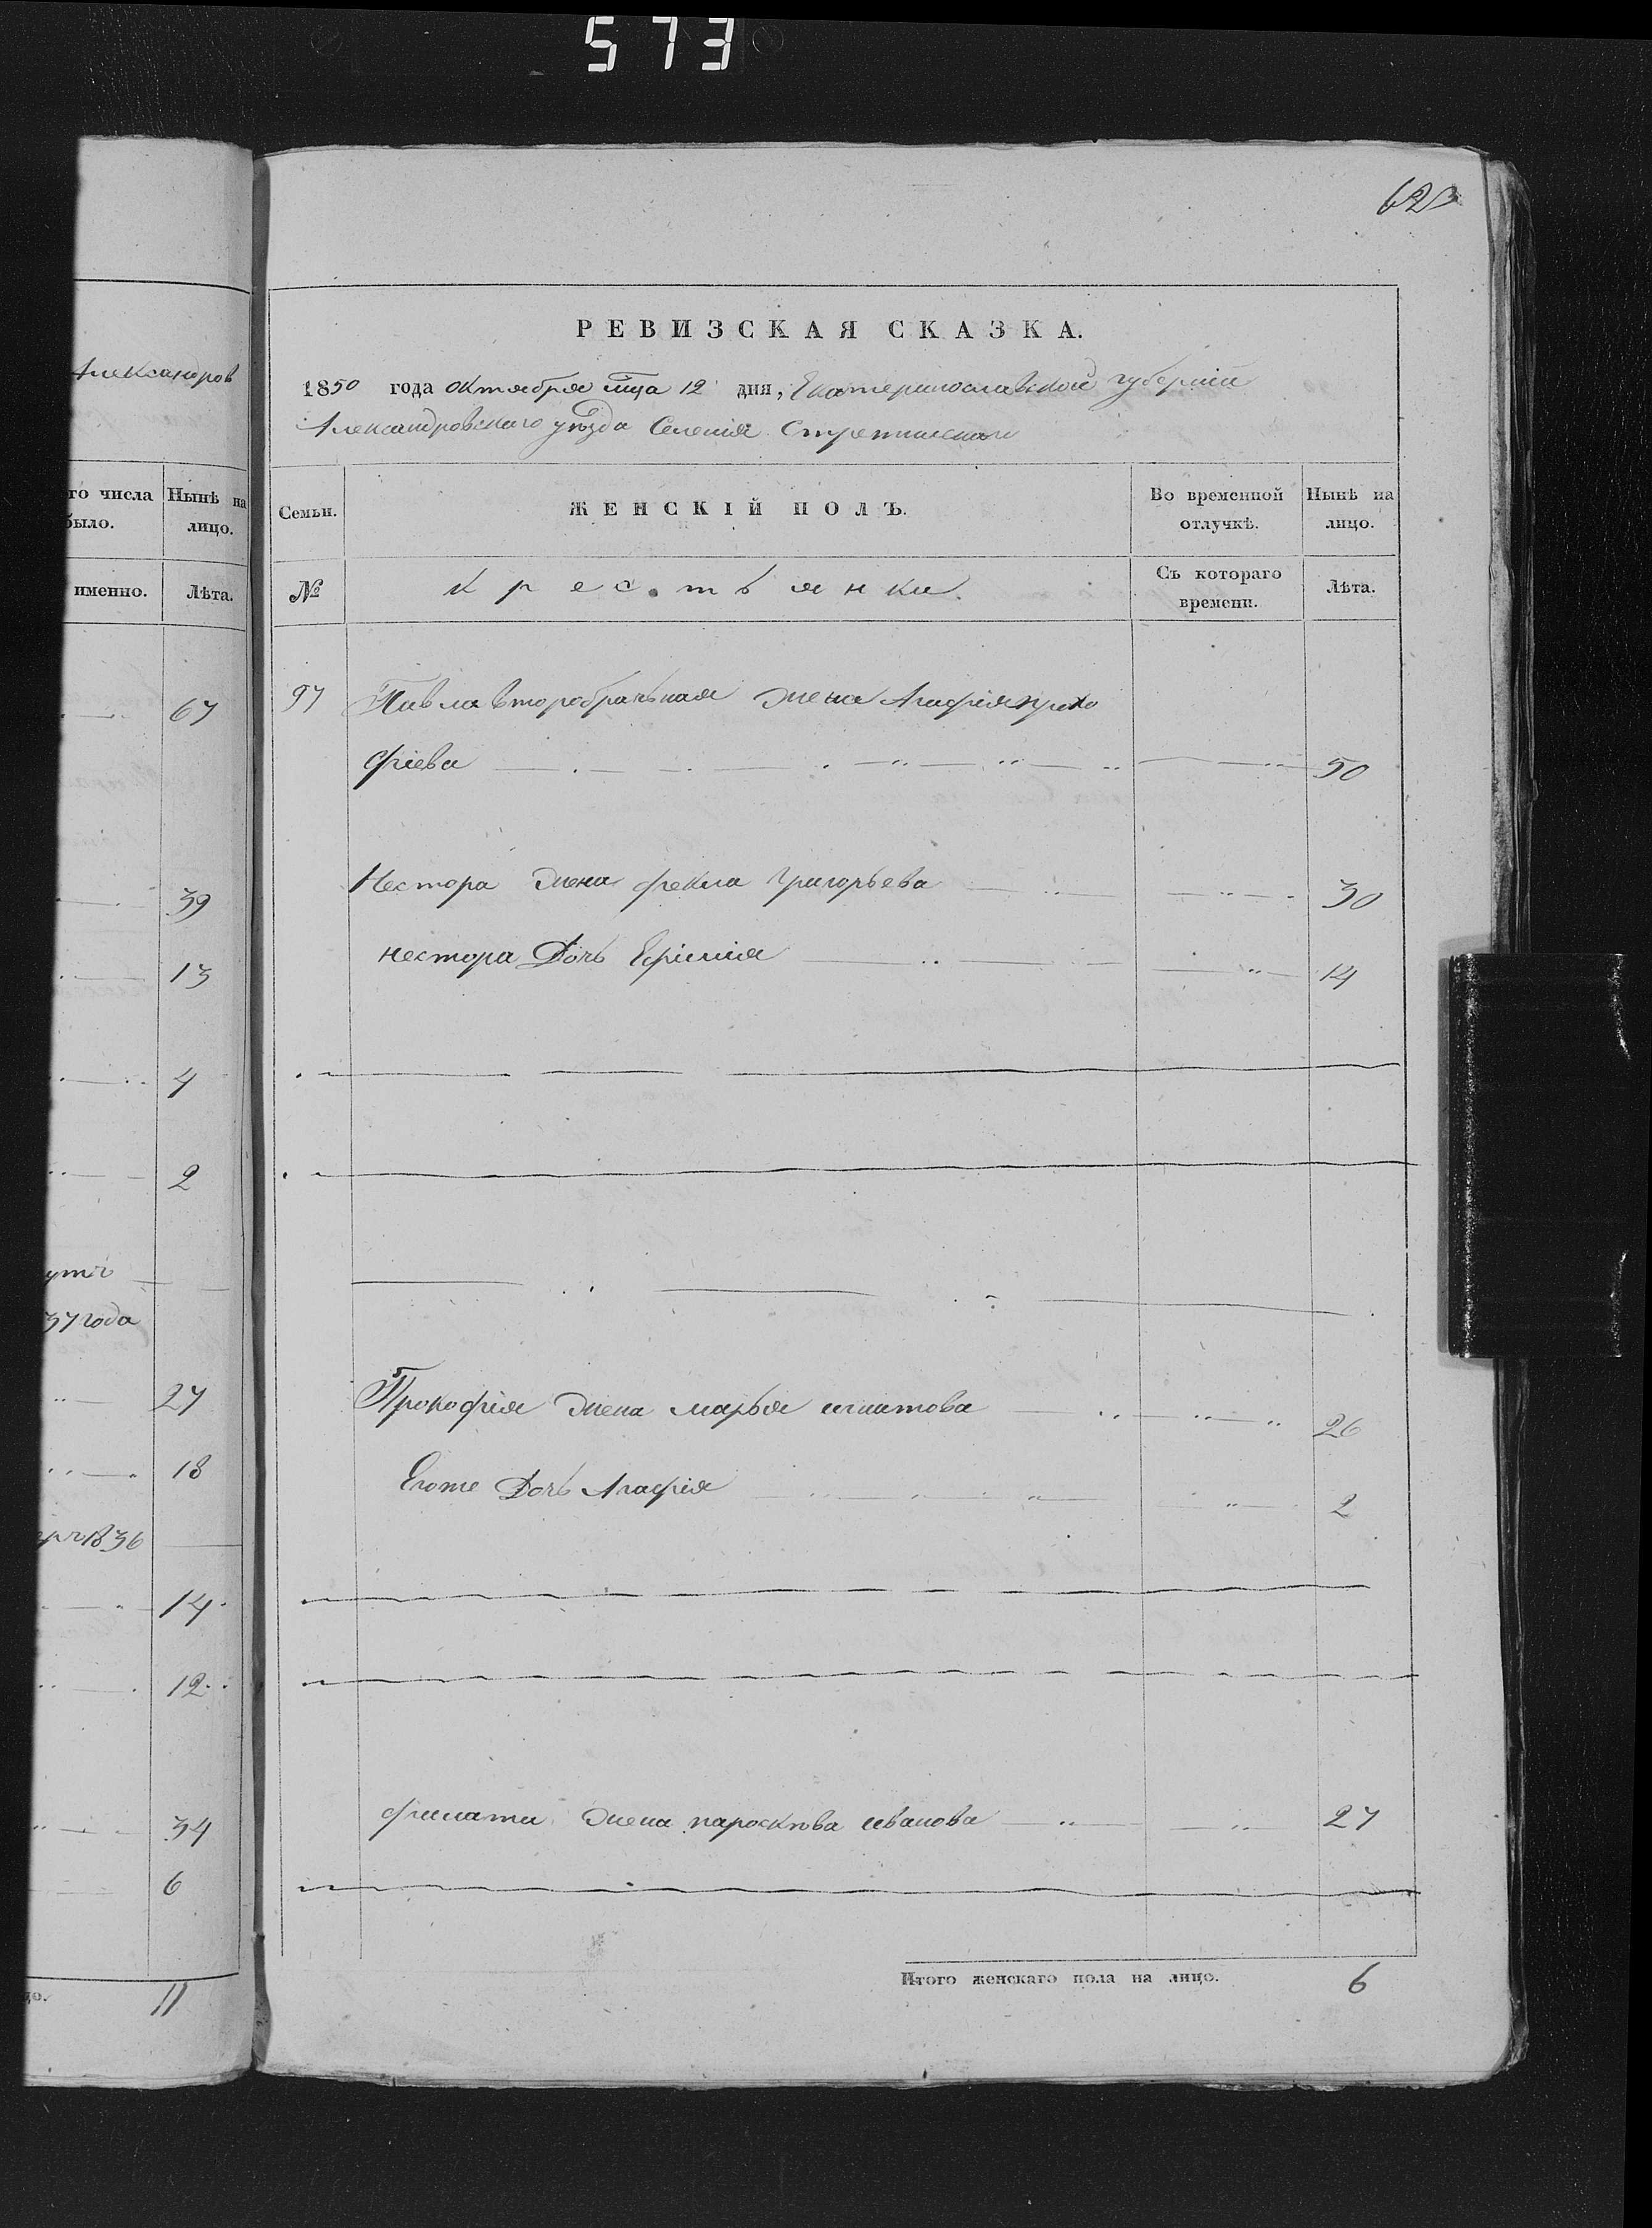 573
623
Александров
го числа
было.
Нынѣ на
лицо.
именно.
Лѣта.
67
39
13
4
2
37 года
27
18
1836
14
12
34
6
11
РЕВИЗСКАЯ СКАЗКА.
1850 года октября мца 12 дня, Екатеринославской губернiи
Александровскаго уѣзда Селенiя Стретинскаго
Семьи.
ЖЕНСКIЙ ПОЛЪ.
Во временной
отлучкѣ.
Нынѣ на
лицо.
№
крестьянки.
Съ котораго
времени.
Лѣта.
97 Павла второбрачьная жена Агафiя проко
фiева 50
Нестора жена фекла Григорьева 30
нестора Дочь Ефимiя 14
Прокофiя жена марья игнатова 26
Егоже Дочь Агафiя 2
филата жена пароскѣва иванова 27
Итого женскаго пола на лицо. 6